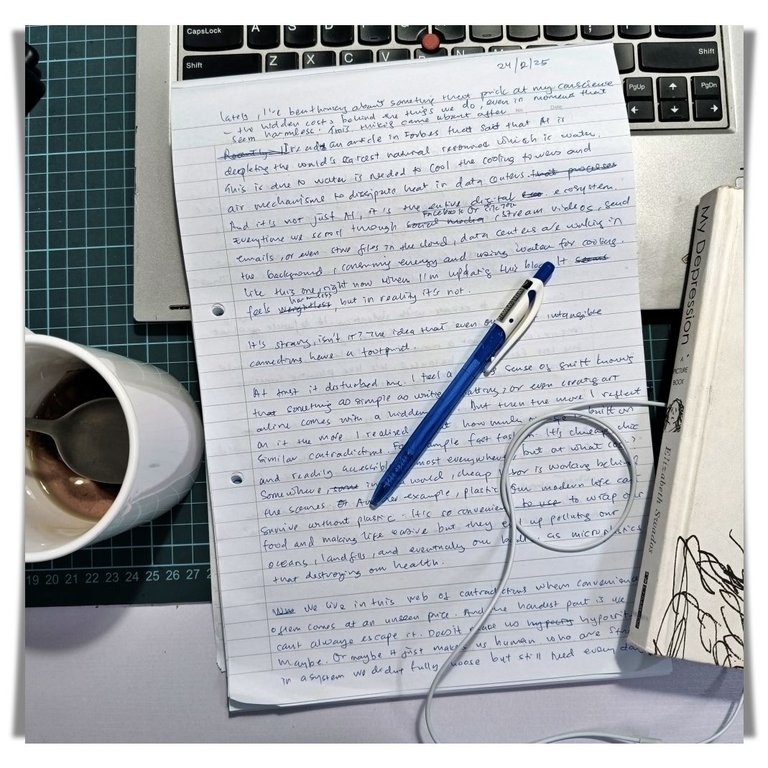 CapsLock
A
S
Shift
Z
X
C
V
B
N
M
Shift
PgUp
PgDn
24/2/25
lately, I've been thinking about something that's prick at my conscience
- the hidden costs behind the things we do, even in moment that
seem harmless. This thing came about after
Recently I read an article in Forbes that said that AI is
depleting the world's earcest natural resource which is water.
This is due to water is needed to cool the cooling towers and
air mechanisms to dissipate heat in data centers that processes
And it's not just AI, it is the entire digital ecosystem.
Everytime we scroll through social media Facebook or, stream videos, send
emails, or even store files in the cloud, data centers are working in
the background, consuming energy and using water for cooling.
like this one, right now when I'm updating this blog. It seems
feels weightless harmless, but in reality it's not.
It's strange, isn't it? The idea that even our intangible
connections have a footprint.
At first it disturbed me. I feel a sense of guilt knowing
that something as simple as or even creating art
online comes with a hidden But then the more I reflect
on it the more I realised how much built on
similar contradictions. For example fast fashion. It's cheap, chic
and readily accessible almost everywhere but at what cost?
Somewhere, some in the world, cheap labor is working behind
the scenes. Or Another example, plastic. Our modern life can't
survive without plastic. It's so convenient to use to wrap our
food and making life easier but they end up polluting our
oceans, landfills, and eventually our as microplastics
that destroying our health.
We live in this web of contradictions where convenience
often comes at an unseen price. And the hardest part is we
can't always escape it. Does it make us hypocrites
Maybe. Or maybe it just makes us human who are
in a system we didn't fully choose but still need every day
My Depression
A PICTURE BOOK
Elizabeth Swados
19 20 21 22 23 24 25 26 27